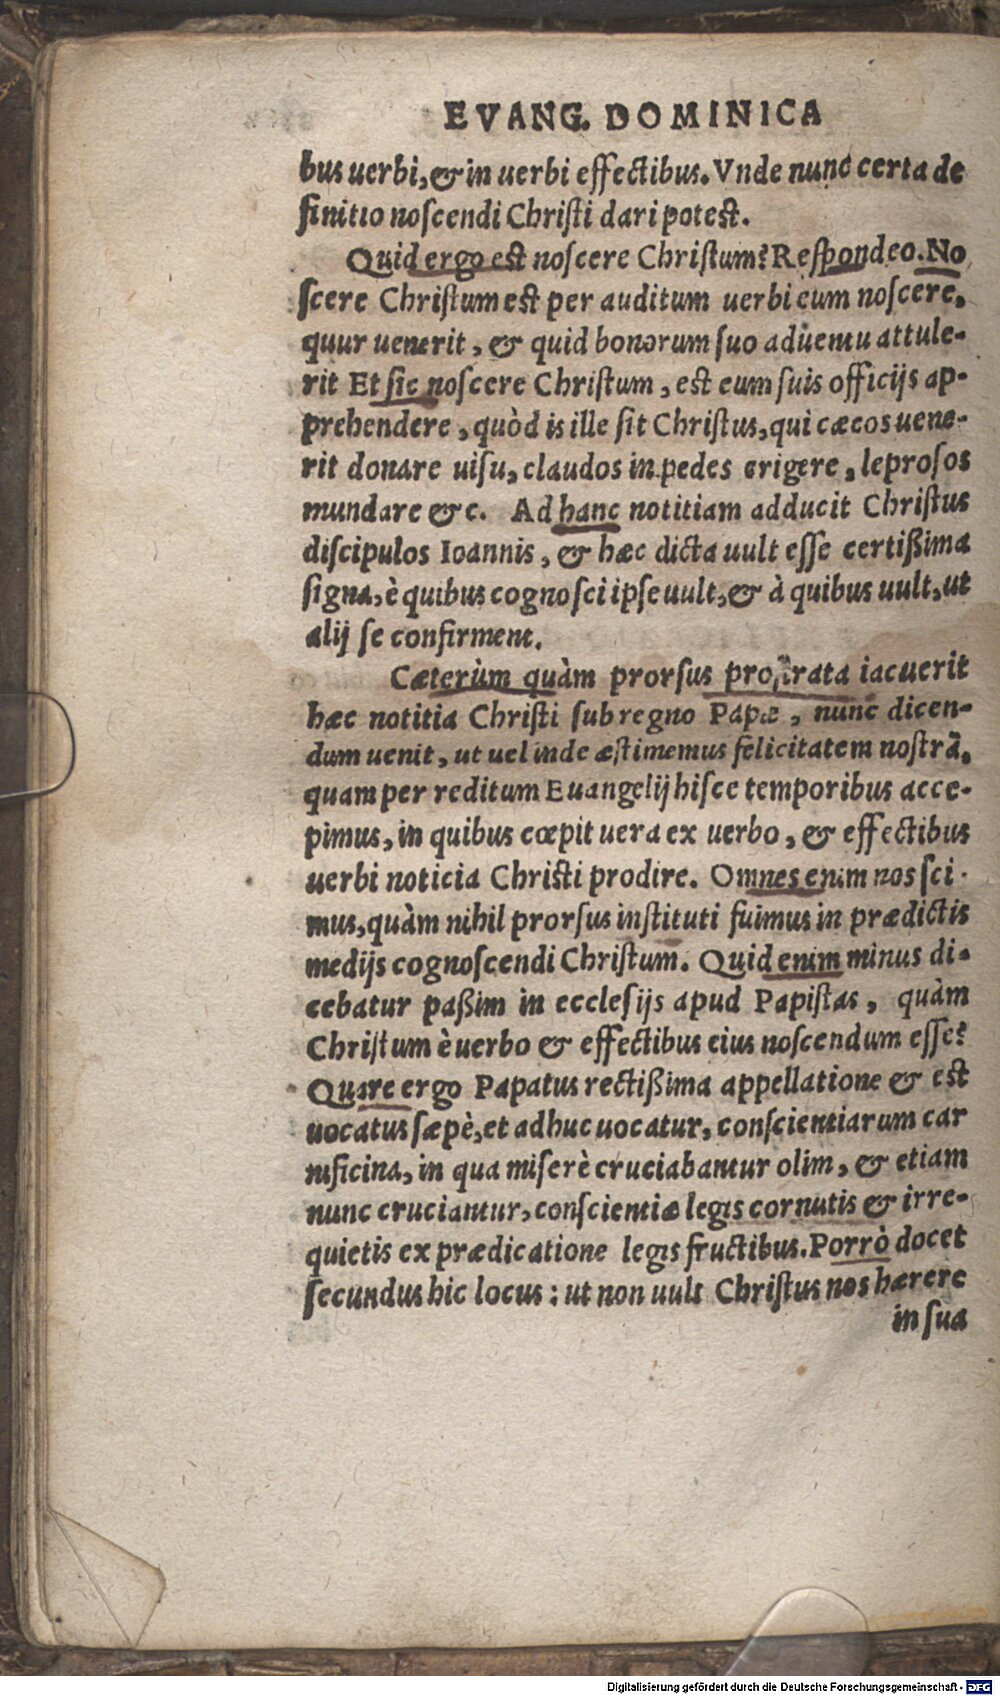 EVANG. DOMINICA
bus uerbi, & in uerbi effectibus. Vnde nunc certa de
finitio noscendi Christi dari potest.
Quid ergo est noscere Christum? Respondeo. No
scere Christum est per auditum uerbi eum noscere,
quur uenerit, & quid bonorum suo aduentu attule-
rit Et sic noscere Christum, est eum suis officijs ap-
prehendere, quòd is ille sit Christus, qui cæcos uene-
rit donare uisu, claudos in pedes erigere, leprosos
mundare &c. Ad hanc notitiam adducit Christus
discipulos Ioannis, & hæc dicta uult esse certißima
signa, è quibus cognosci ipse uult, & à quibus uult, ut
alij se confirment.
Cæterùm quàm prorsus prostrata iacuerit
hæc notitia Christi sub regno Papæ, nunc dicen-
dum uenit, ut uel inde æstimemus felicitatem nostrã,
quam per reditum Euangelij hisce temporibus acce-
pimus, in quibus cœpit uera ex uerbo, & effectibus
uerbi noticia Christi prodire. Omnes enim nos sci-
mus, quàm nihil prorsus instituti fuimus in prædictis
medijs cognoscendi Christum. Quid enim minus di-
cebatur paßim in ecclesijs apud Papistas, quàm
Christum è uerbo & effectibus eius noscendum esse?
Quare ergo Papatus rectißima appellatione & est
uocatus sæpè, et adhuc uocatur, conscientiarum car
nificina, in qua miserè cruciabantur olim, & etiam
nunc cruciantur, conscientiæ legis cornutis & irre-
quietis ex prædicatione legis fructibus. Porrò docet
secundus hic locus: ut non uult Christus nos hærere
in sua
Digitalisierung gefördert durch die Deutsche Forschungsgemeinschaft - DFG